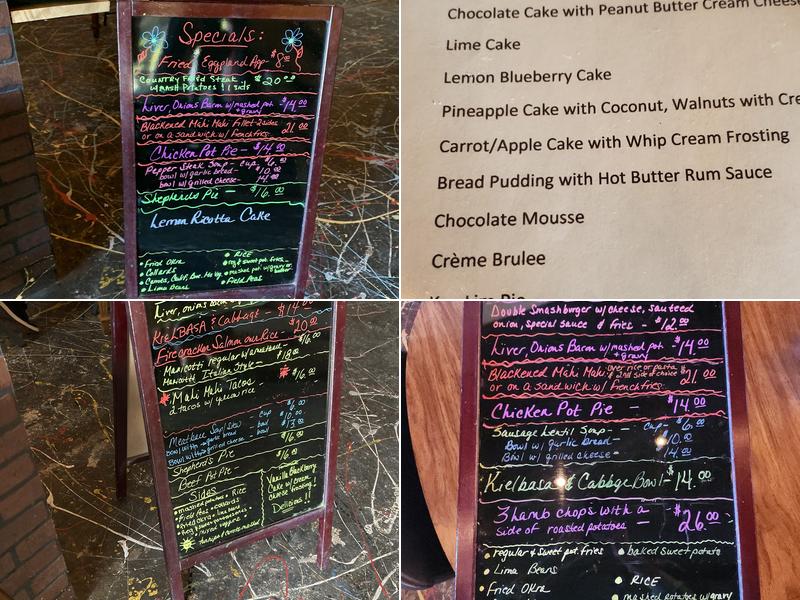 Specials:
Fried Eggpland App- $8.00
Country Fried Steak $20.00
w/mash Potatoes / 1 side
Liver, Onions Bacon w/mashed pot. $14.00
+gravy
Blackened Mahi Mahi Fillet-2 sides
or on a sandwich w/ frenchfries 21.00
Chicken Pot Pie - $14.00
Pepper Steak Soup - cup $6.00
bowl w/garlic bread - $10.00
bowl w/grilled cheese - 14.00
Shepherds Pie - $16.00
Lemon Ricotta Cake
• Fried Okra
• Collards
• Lima Beans
• RICE
• reg & sweet pot. fries
• mashed pot. w/gravy or butter
• Field Peas
Chocolate Cake with Peanut Butter Cream Cheese
Lime Cake
Lemon Blueberry Cake
Pineapple Cake with Coconut, Walnuts with Cre
Carrot/Apple Cake with Whip Cream Frosting
Bread Pudding with Hot Butter Rum Sauce
Chocolate Mousse
Crème Brulee
Liver, onions bacon
KielBASA & Cabbage - $14.00
Firecracker Salmon over Rice - $20.00
Manicotti regular w/
Manicotti Italian Style - $18.00
Mahi Mahi Tacos $16.00
2 tacos w/ yellow rice
Meatball Soup/Stew - cup
bowl with garlic bread - bowl
Bowl with grilled cheese - bowl $13.00
Shepherd's Pie $16.00
Beef Pot Pie $16.00
Sides
• mashed potatoes • Rice
• Field Peas • collards
• Fried Okra • lima beans
Vanilla Blackberry
Cake w/cream
cheese frosting!
Delicious!!
Double Smashburger w/cheese, sauteed
onion, special sauce & fries - $12.00
Liver, Onions Bacon w/mashed pot. - $14.00
+gravy
Blackened Mahi Mahi over rice or pasta
& 2nd side of choice
or on a sandwich w/ frenchfries $21.00
Chicken Pot Pie - $14.00
Sausage Lentil Soup - Cup - $6.00
Bowl w/ garlic bread - $10.00
Bowl w/ grilled cheese - 14.00
Kielbasa & Cabbge Bowl - $14.00
3 lamb chops with a
side of roasted potatoes - $26.00
• regular & Sweet pot. fries
• Lima Beans
• Fried Okra
• baked sweet potato
• RICE
• mashed potatoes w/gravy